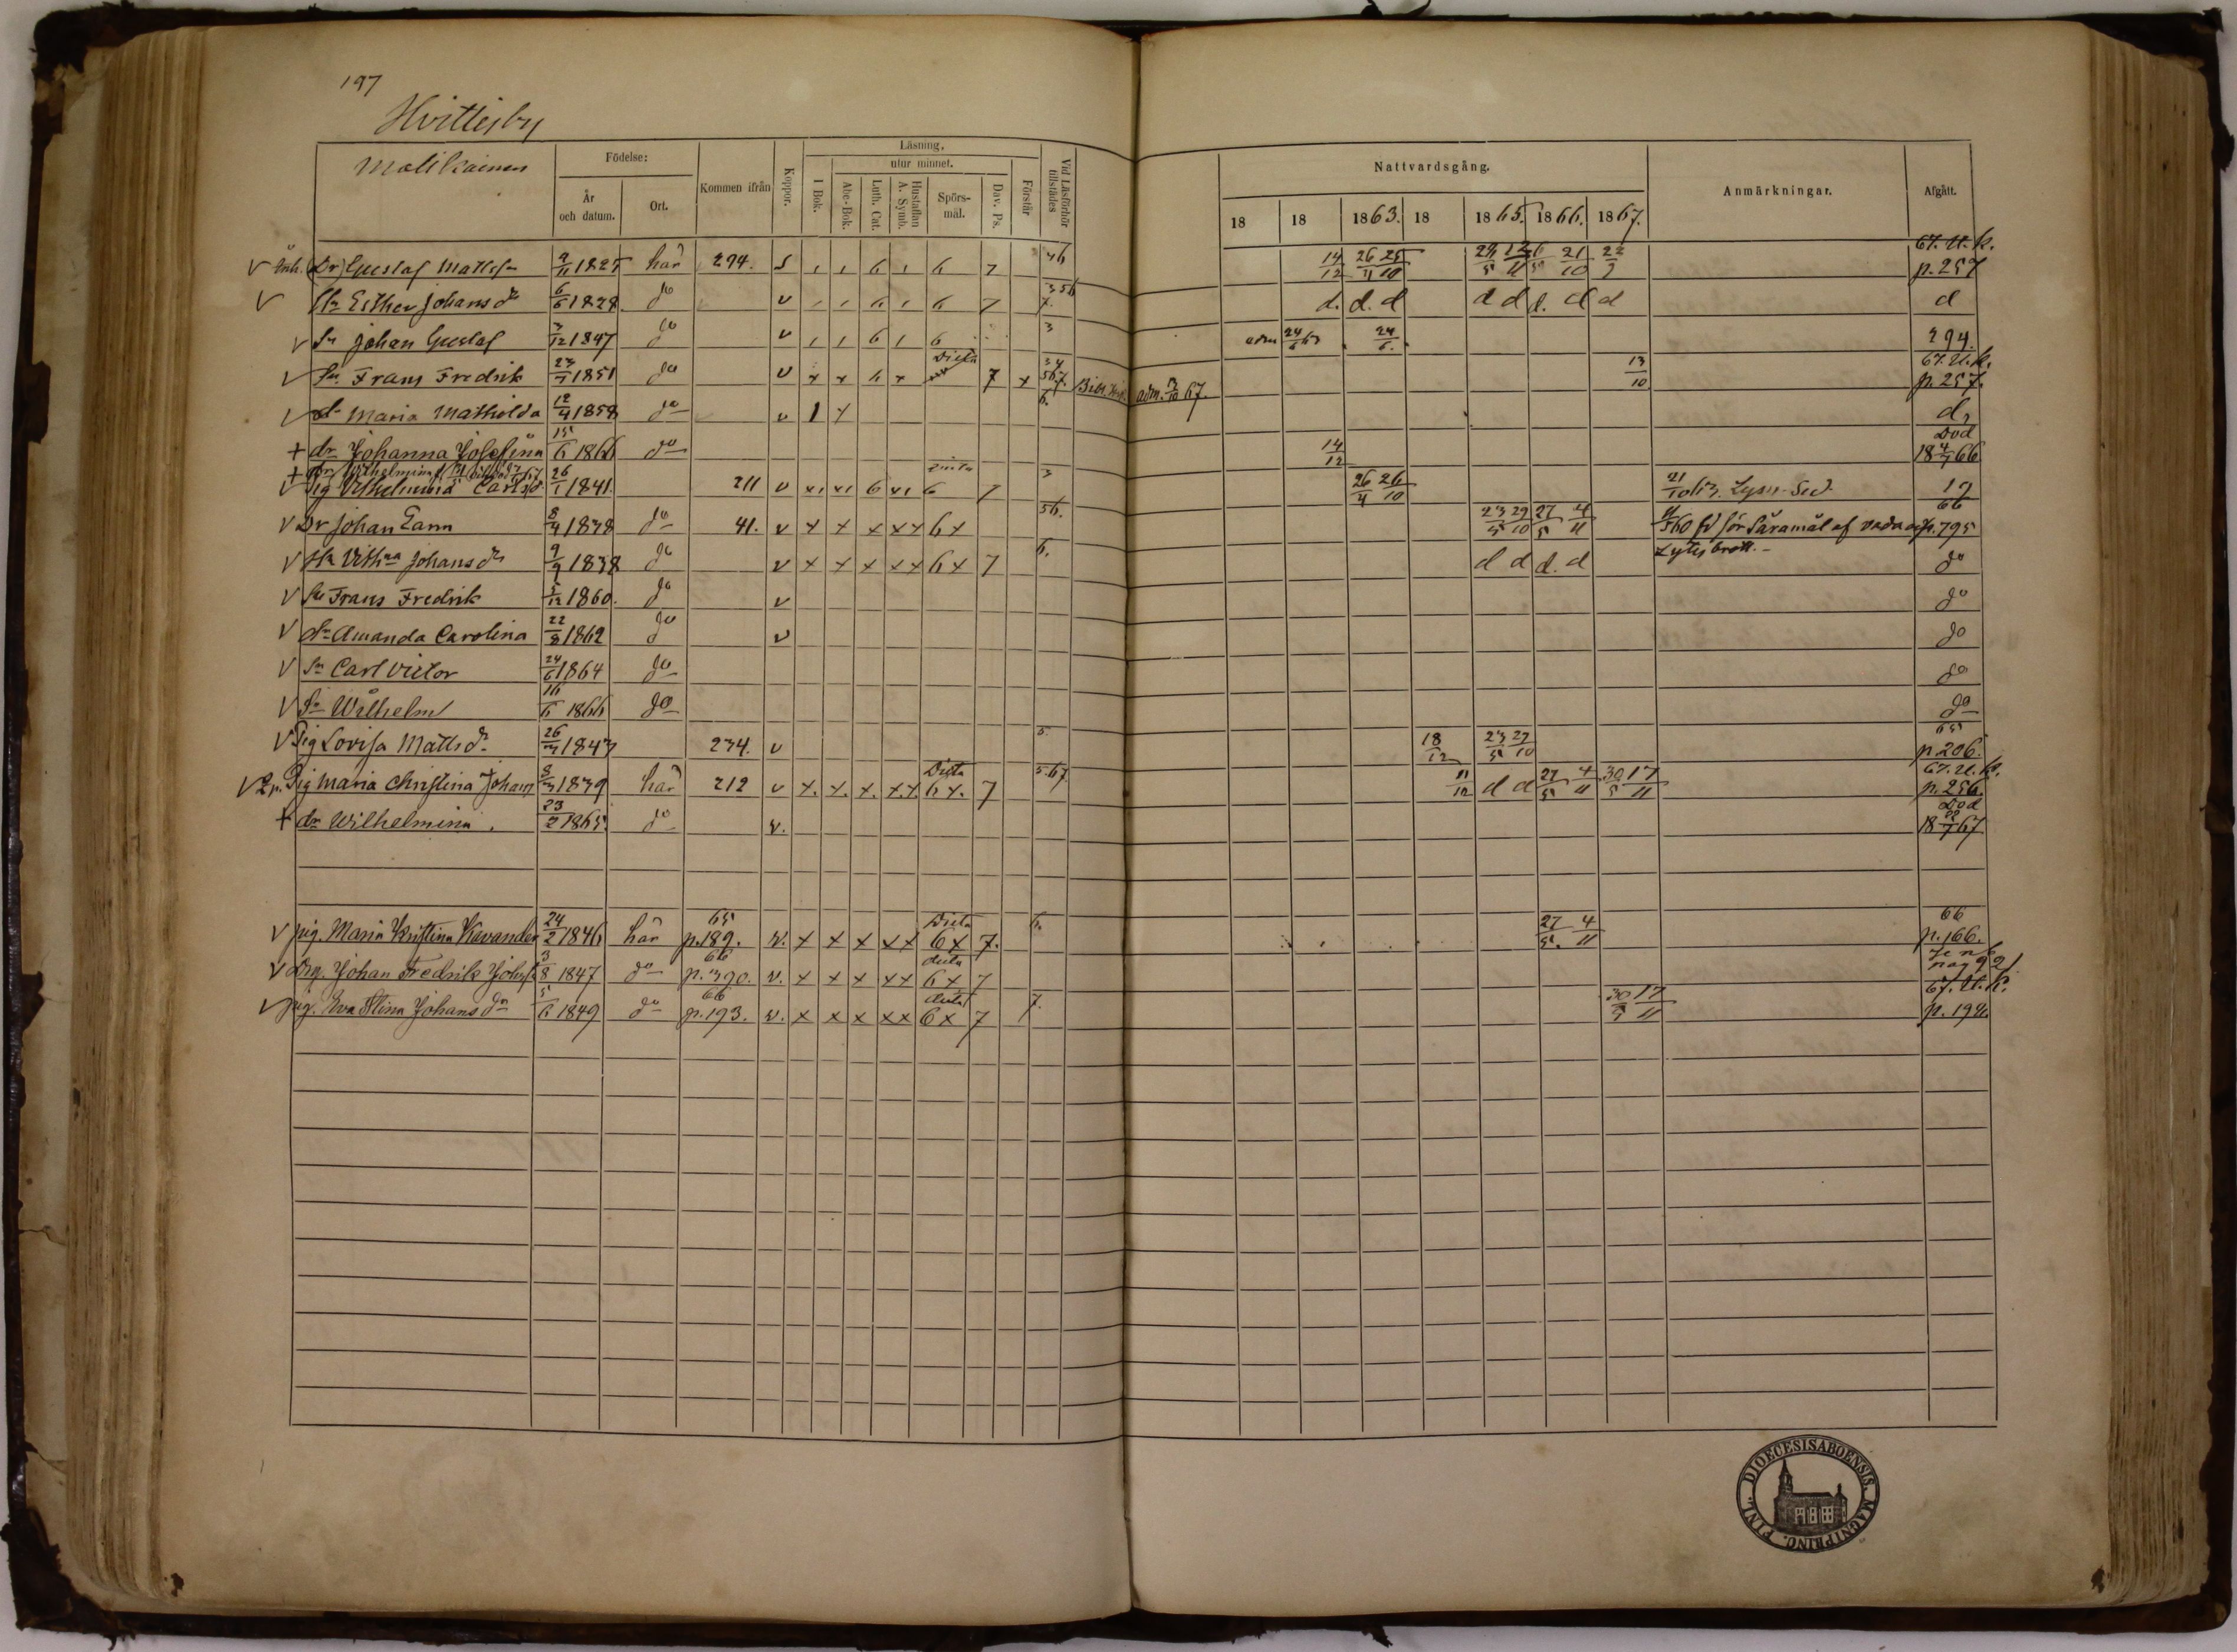 197
Hvittisby
Molikainen
Födelse:
År och datum.
Ort.
Kommen ifrån
Koppor.
Läsning,
utur minnet.
I Bok.
Abc-Bok.
Luth. Cat.
Hustaflan A. Symb.
Spörsmål.
Dav. Ps.
Förstår
Vid Läsförhör tillstädes
Nattvardsgång.
18 18 1863. 18 1865. 1866. 1867.
Anmärkningar.
Afgått.
V Inh. (Dr) Gustaf Mattss 9/11 1825 här 294. s 1 1 6 1 6 7 14/12 26/4 25/10 21/10 67. U.K. p. 257
V Hu Esther Johansdr 6/6 1828 do v 1 1 6 1 6 7 356 d. d. d d d d. d d d
V Sn Johan Gustaf 3/12 1847 do v 1 1 6 1 6 3 adm 24/6 63 24/6. 294.
V Sn Frans Fredrik 23/7 1851 do v x x 6 x Dicta 7 x adm. 13/10 67. 13/10 67. U.K. p. 257.
V dr Maria Mathilda 12/4 1858 do v 1 6.
+ dr Johanna Josefina 15/6 1866 do 14/12 Död 18 4/7 66
+ Dr Wilhelmina
V Pig Vilhelmina Carlsdr 26/1 1841. 211 v 6 6 7 3 26/4 26/10 21/10 Lysn. Sed. 17
V Dr Johan Earn 8/4 1838 do 41. v x x x xx 6x 56. 23/5 29/10 27/5 4/11 för Såramål af vada 66 p. 795
V Hu Vilhna Johansdr 9/9 1838 do v x x x xx 6x 7 6. d d d. d Lytesbrott. do
V Sn Frans Fredrik 5/12 1860. do v do
V dr Amanda Carolina 22/8 1862 do v do
V Sn Carl Victor 24/6 1864 do do
V Sn Wilhelm 16/6 1866 do do
V Pig Lovisa Mattsdr 26/3 1843 234. v 5. 18/12 23/5 29/10 65 p. 206.
V Pig Maria Christina Johans 8/3 1839 här 212 v x. x. x. x.x. Dicta 6x. 7 5.67 11/12 d d 27/5 4/11 30/5 17/11 67. U.K. p. 256.
+ dr Wilhelmina. 23/2 1865 do v. Död 18 22/7 67
V pig. Maria Kristina Kavander 24/2 1846 här 65 p. 189. v. x x x xx Dicta 6x 7. 6. 27/5. 4/11 66 p. 166.
V Drg. Johan Fredrik Johss 3/8 1847 do 66 p. 390. v. x x x xx dicta 6x 7 pag 92
V pig. Eva Stina Johansdr 5/6 1849 do 66 p. 193. v. x x x xx dicta 6x 7 7. 30/5 17/11 67. U.K. p. 194.
DIOECESIS ABOENSIS. MAGNI PRINC. FINL.